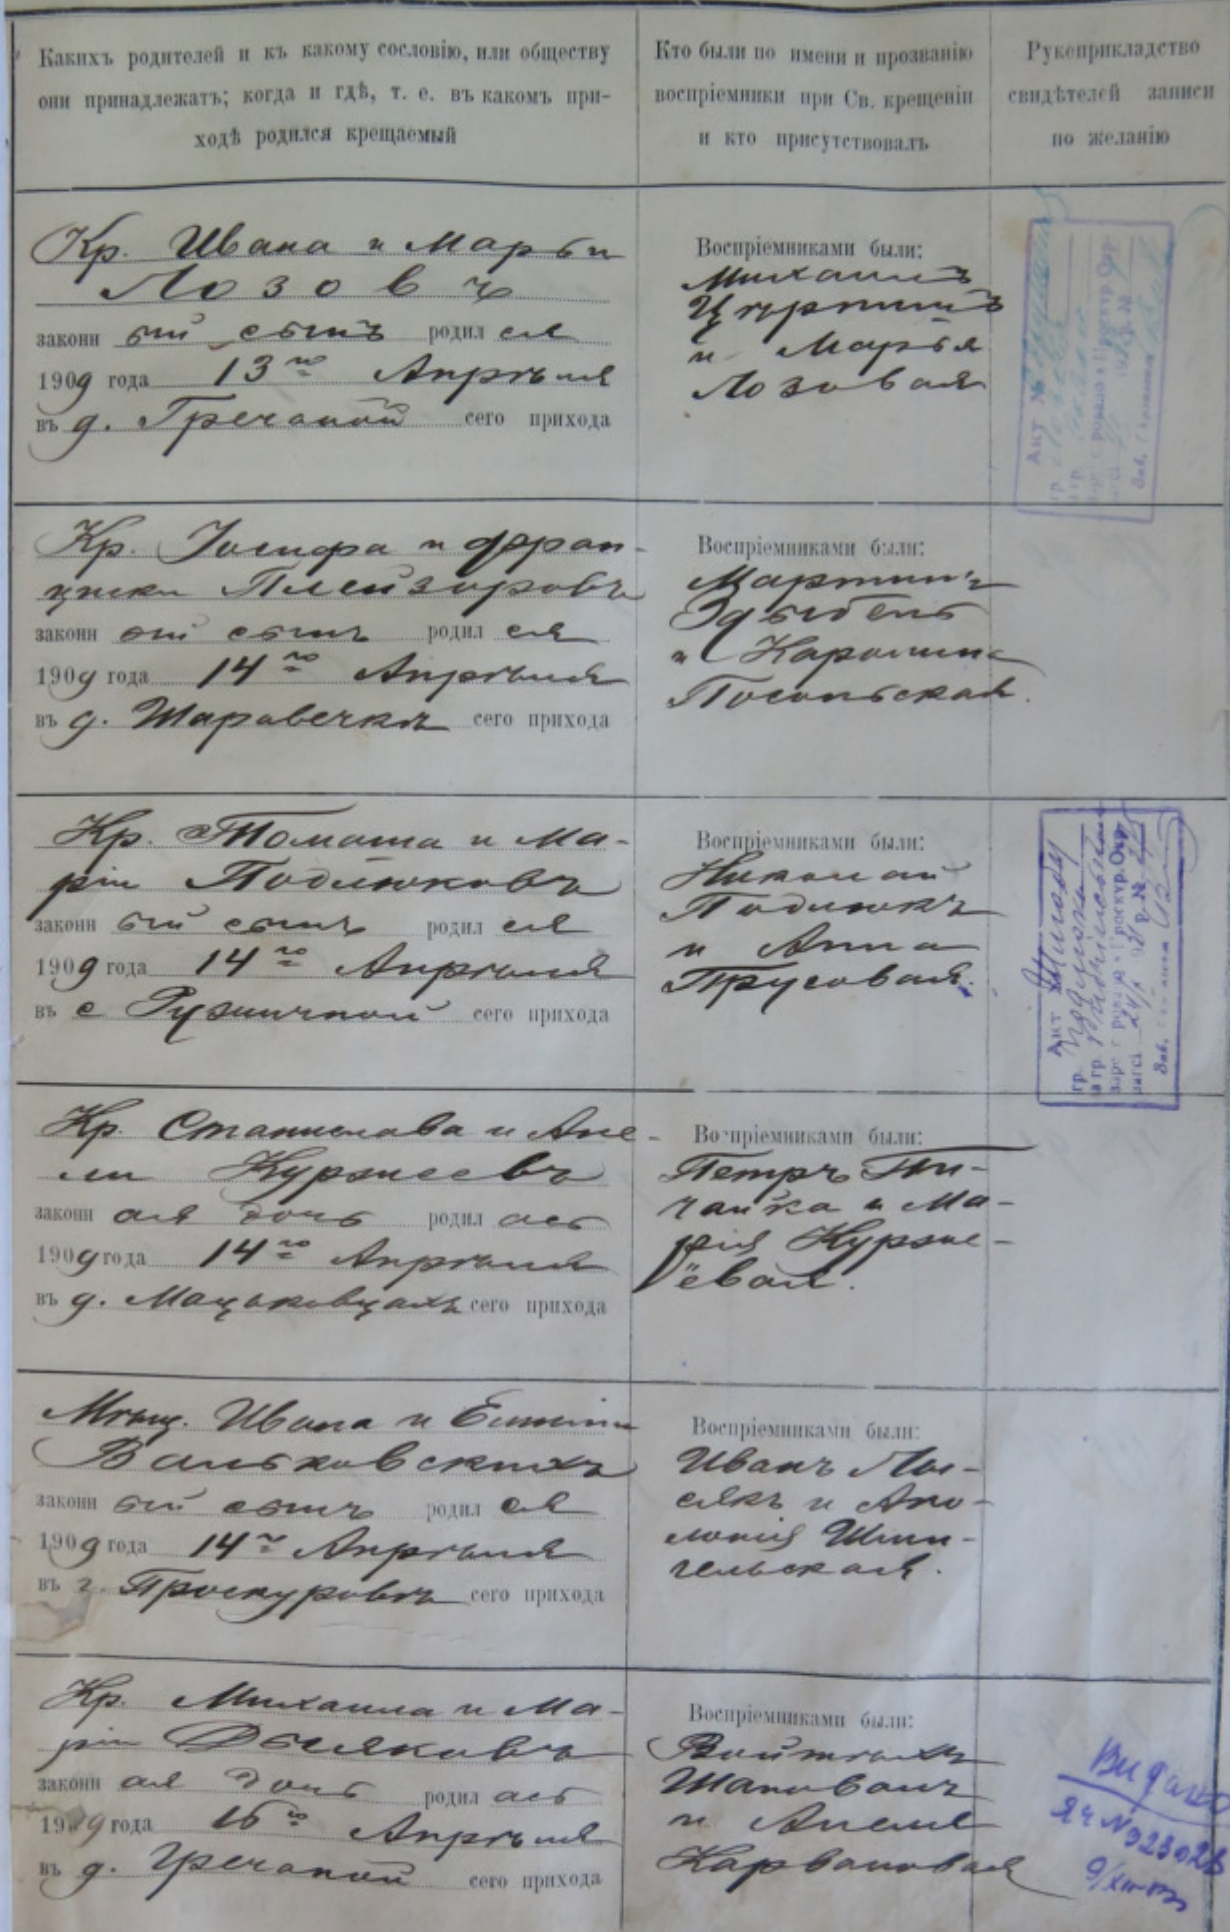 Какихъ родителей и къ какому сословію, или обществу
они принадлежатъ; когда и гдѣ, т. е. въ какомъ при-
ходѣ родился крещаемый
Кто были по имени и прозванію
воспріемники при Св. крещеніи
и кто присутствовалъ
Рукоприкладство
свидѣтелей записи
по желанію
Кр. Ивана и Марьи
Лозовъ
законн ый сынъ родил ся
1909 года 13го Апрѣля
въ д. Гречаной сего прихода
Воспріемниками были:
Михаилъ
и Марья
Лозовая
Акт №
Кр. Іосифа и Фран-
циски Плейзоровъ
законн ый сынъ родил ся
1909 года 14го Апрѣля
въ д. Шаровечкѣ сего прихода
Воспріемниками были:
Мартинъ
и Каролина
Посольская.
Кр. Томаша и Ма-
ріи Подлюковъ
законн ый сынъ родил ся
1909 года 14го Апрѣля
въ с Ружичной сего прихода
Воспріемниками были:
Николай
Подлюкъ
и Анна
Трусовая.
Акт
гр.
Кр. Станислава и Ане-
ли Куржеевъ
законн ая дочь родил ась
1909 года 14го Апрѣля
въ д. Мацьковцахъ сего прихода
Воспріемниками были:
Петръ Пи-
чайка и Ма-
рія Курже-
ёвая.
Мѣщ. Ивана и Емиліи
Вальковскихъ
законн ый сынъ родил ся
1909 года 14го Апрѣля
въ г. Проскуровѣ сего прихода
Воспріемниками были:
Иванъ Ло-
сякъ и Апо-
лонія Шпи-
гельская.
Кр. Михаила и Ма-
ріи Дыяковъ
законн ая дочь родил ась
1909 года 16го Апрѣля
въ д. Гречаной сего прихода
Воспріемниками были:
Войтѣхъ
Шаповалъ
и Анеля
Карвановая
Видано
ЯЧ № 023028